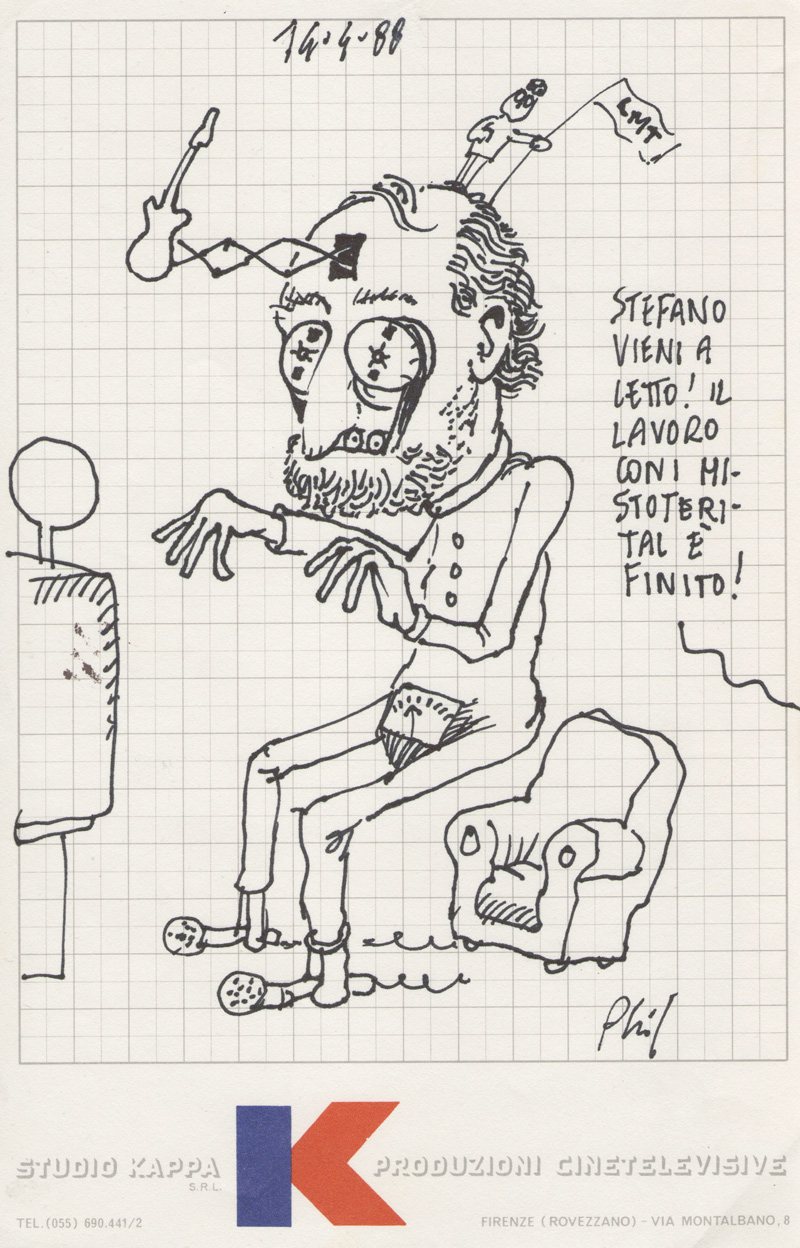 14·4·88
RMT
STEFANO
VIENI A
LETTO! IL
LAVORO
CON I MI-
STOTERI-
TAL È
FINITO!
Phil
STUDIO KAPPA
S.R.L.
K
PRODUZIONI CINETELEVISIVE
TEL.(055) 690.441/2
FIRENZE (ROVEZZANO) - VIA MONTALBANO, 8